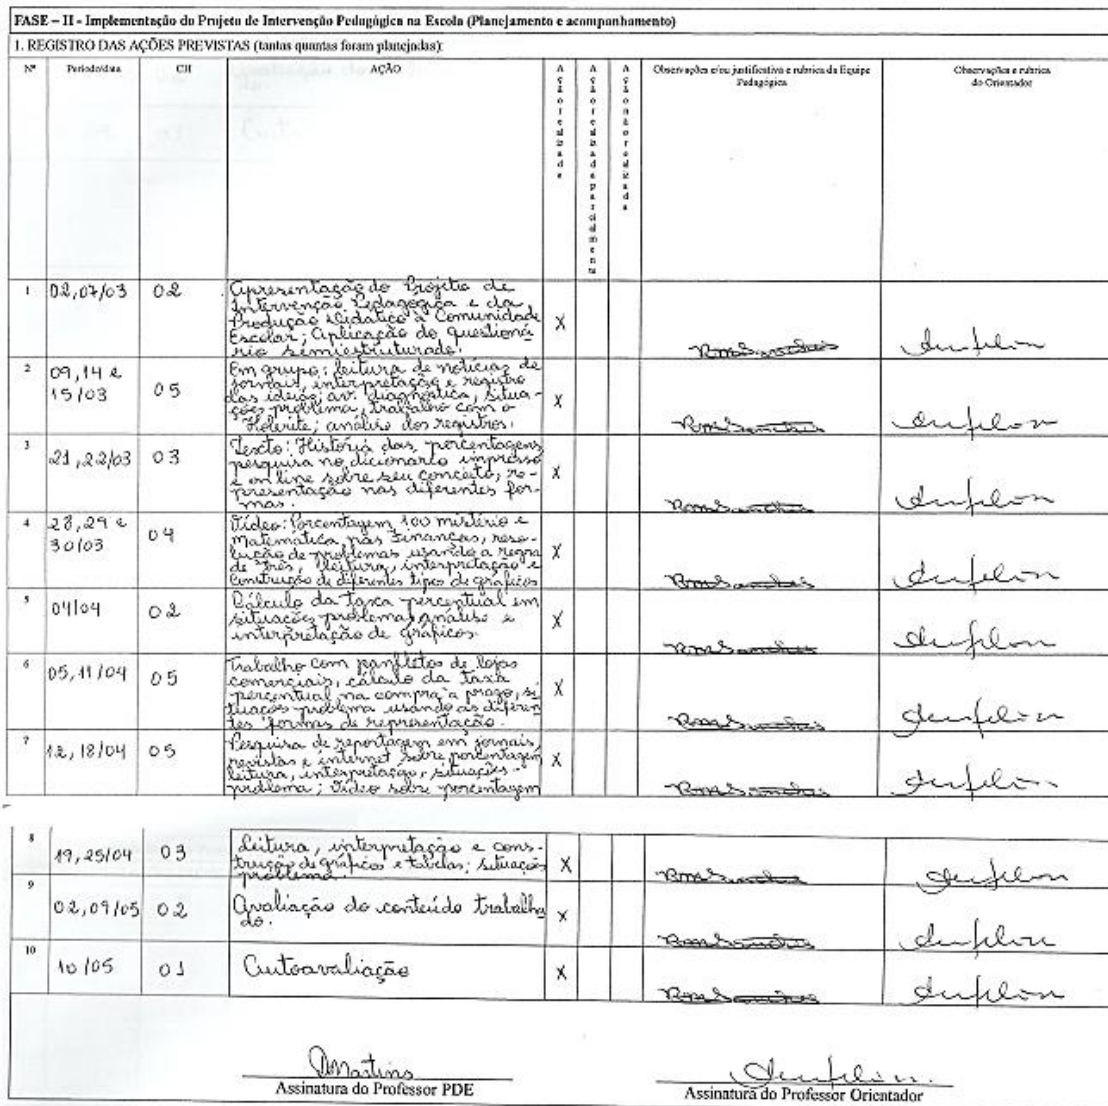 FASE – II - Implementação do Projeto de Intervenção Pedagógica na Escola (Planejamento e acompanhamento)
1. REGISTRO DAS AÇÕES PREVISTAS (tantas quantas foram planejadas):
Nº Período/data CH AÇÃO Ação realizada Ação realizada parcialmente Ação não realizada Observações e/ou justificativa e rubrica da Equipe Pedagógica Observações e rubrica do Orientador
1 02,07/03 02 Apresentação do Projeto de
Intervenção Pedagógica e da
Produção Didática à Comunidade
Escolar; Aplicação do questioná
rio semiestruturado. X
2 09,14 e 15/03 05 Em grupo: leitura de notícias de
jornais, interpretação e registro
das ideias, av. diagnóstica, situa-
ções problema, trabalho com o
Holerite; análise dos registros. X
3 21,22/03 03 Texto: História das porcentagens
pesquisa no dicionário impresso
e on line sobre seu conceito, re-
presentação nas diferentes for-
mas. X
4 28,29 e 30/03 04 Vídeo: Porcentagem, 100 mistério e
Matemática nas Finanças, reso-
lução de problemas usando a regra
de três, leitura, interpretação e
Construção de diferentes tipos de gráficos X
5 04/04 02 Cálculo da taxa percentual em
situações-problema, análise e
interpretação de gráficos. X
6 05,11/04 05 Trabalho com panfletos de lojas
comerciais, cálculo da taxa
percentual na compra à prazo, si
tuações-problema usando as diferen
tes formas de representação. X
7 12,18/04 05 Pesquisa de reportagem em jornais,
revistas e internet sobre porcentagem
leitura, interpretação, situações-
problema; Vídeo sobre porcentagem X
8 19,25/04 03 Leitura, interpretação e cons-
trução de gráficos e tabelas; situação
problema. X
9 02,09/05 02 Avaliação do conteúdo trabalha
do. X
10 10/05 01 Autoavaliação X
Martins
Assinatura do Professor PDE
Assinatura do Professor Orientador